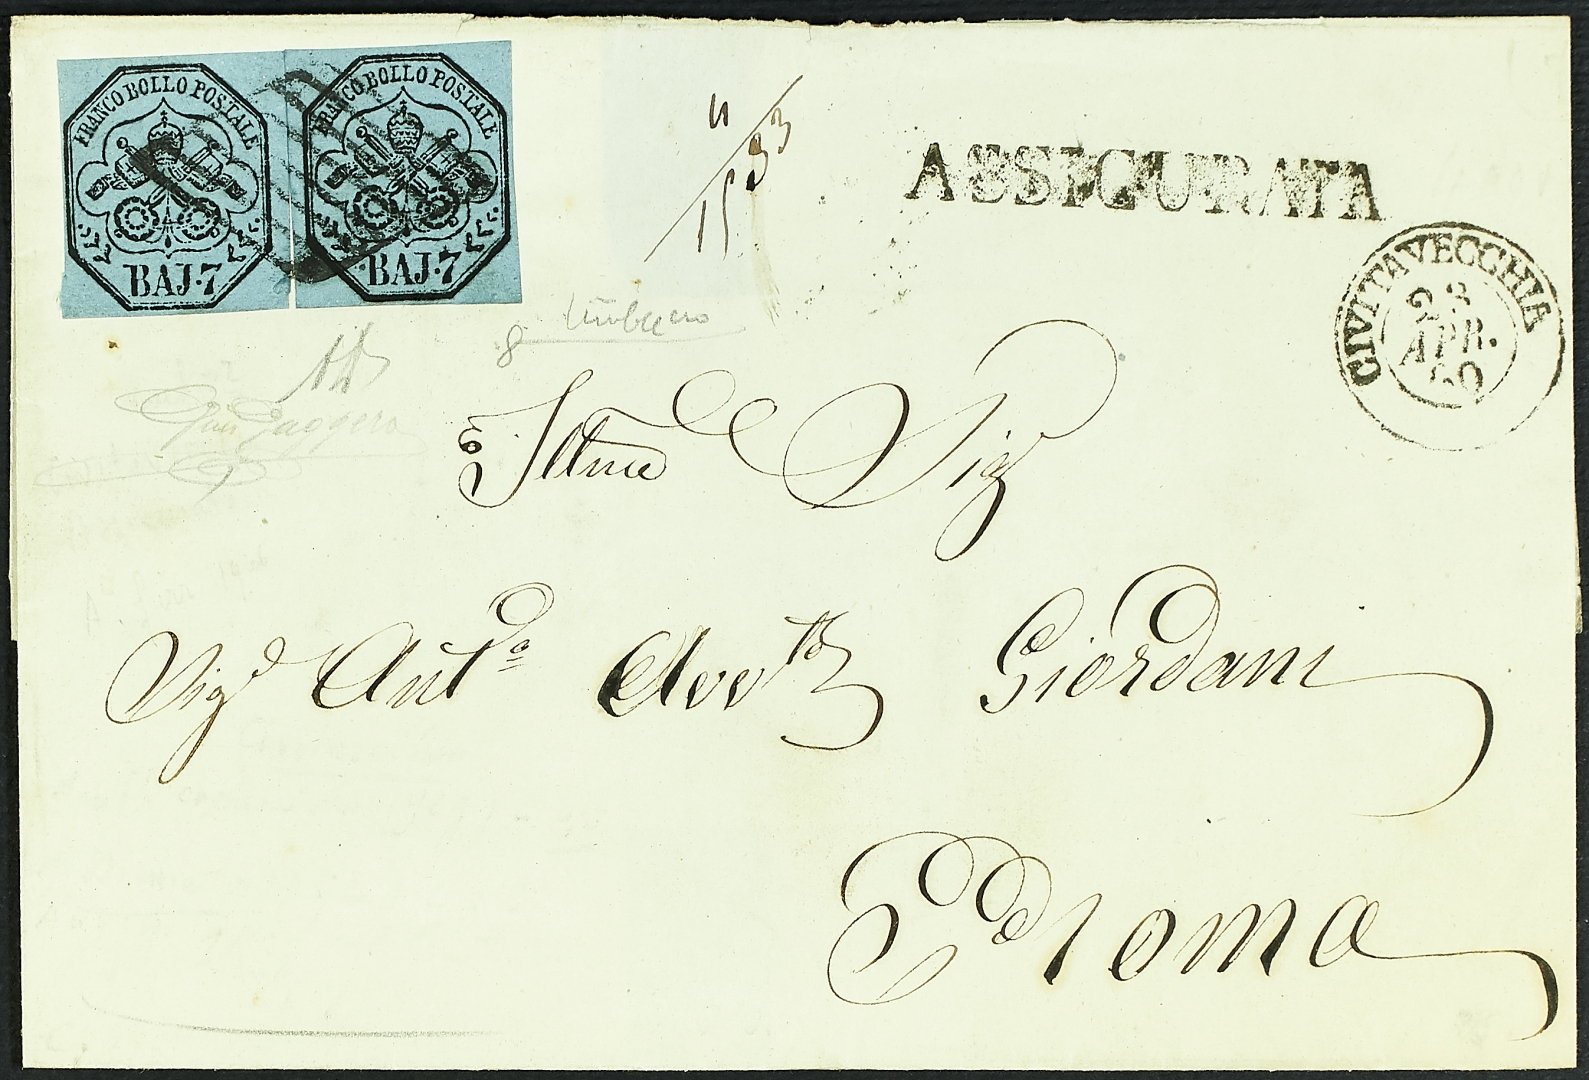 FRANCO BOLLO POSTALE
BAJ. 7
FRANCO BOLLO POSTALE
BAJ. 7
11
1533
ASSICURATA
CIVITAVECCHIA
APR.
60
8
Illmo Sig
Sig. Anto Avvto Giordani
Roma